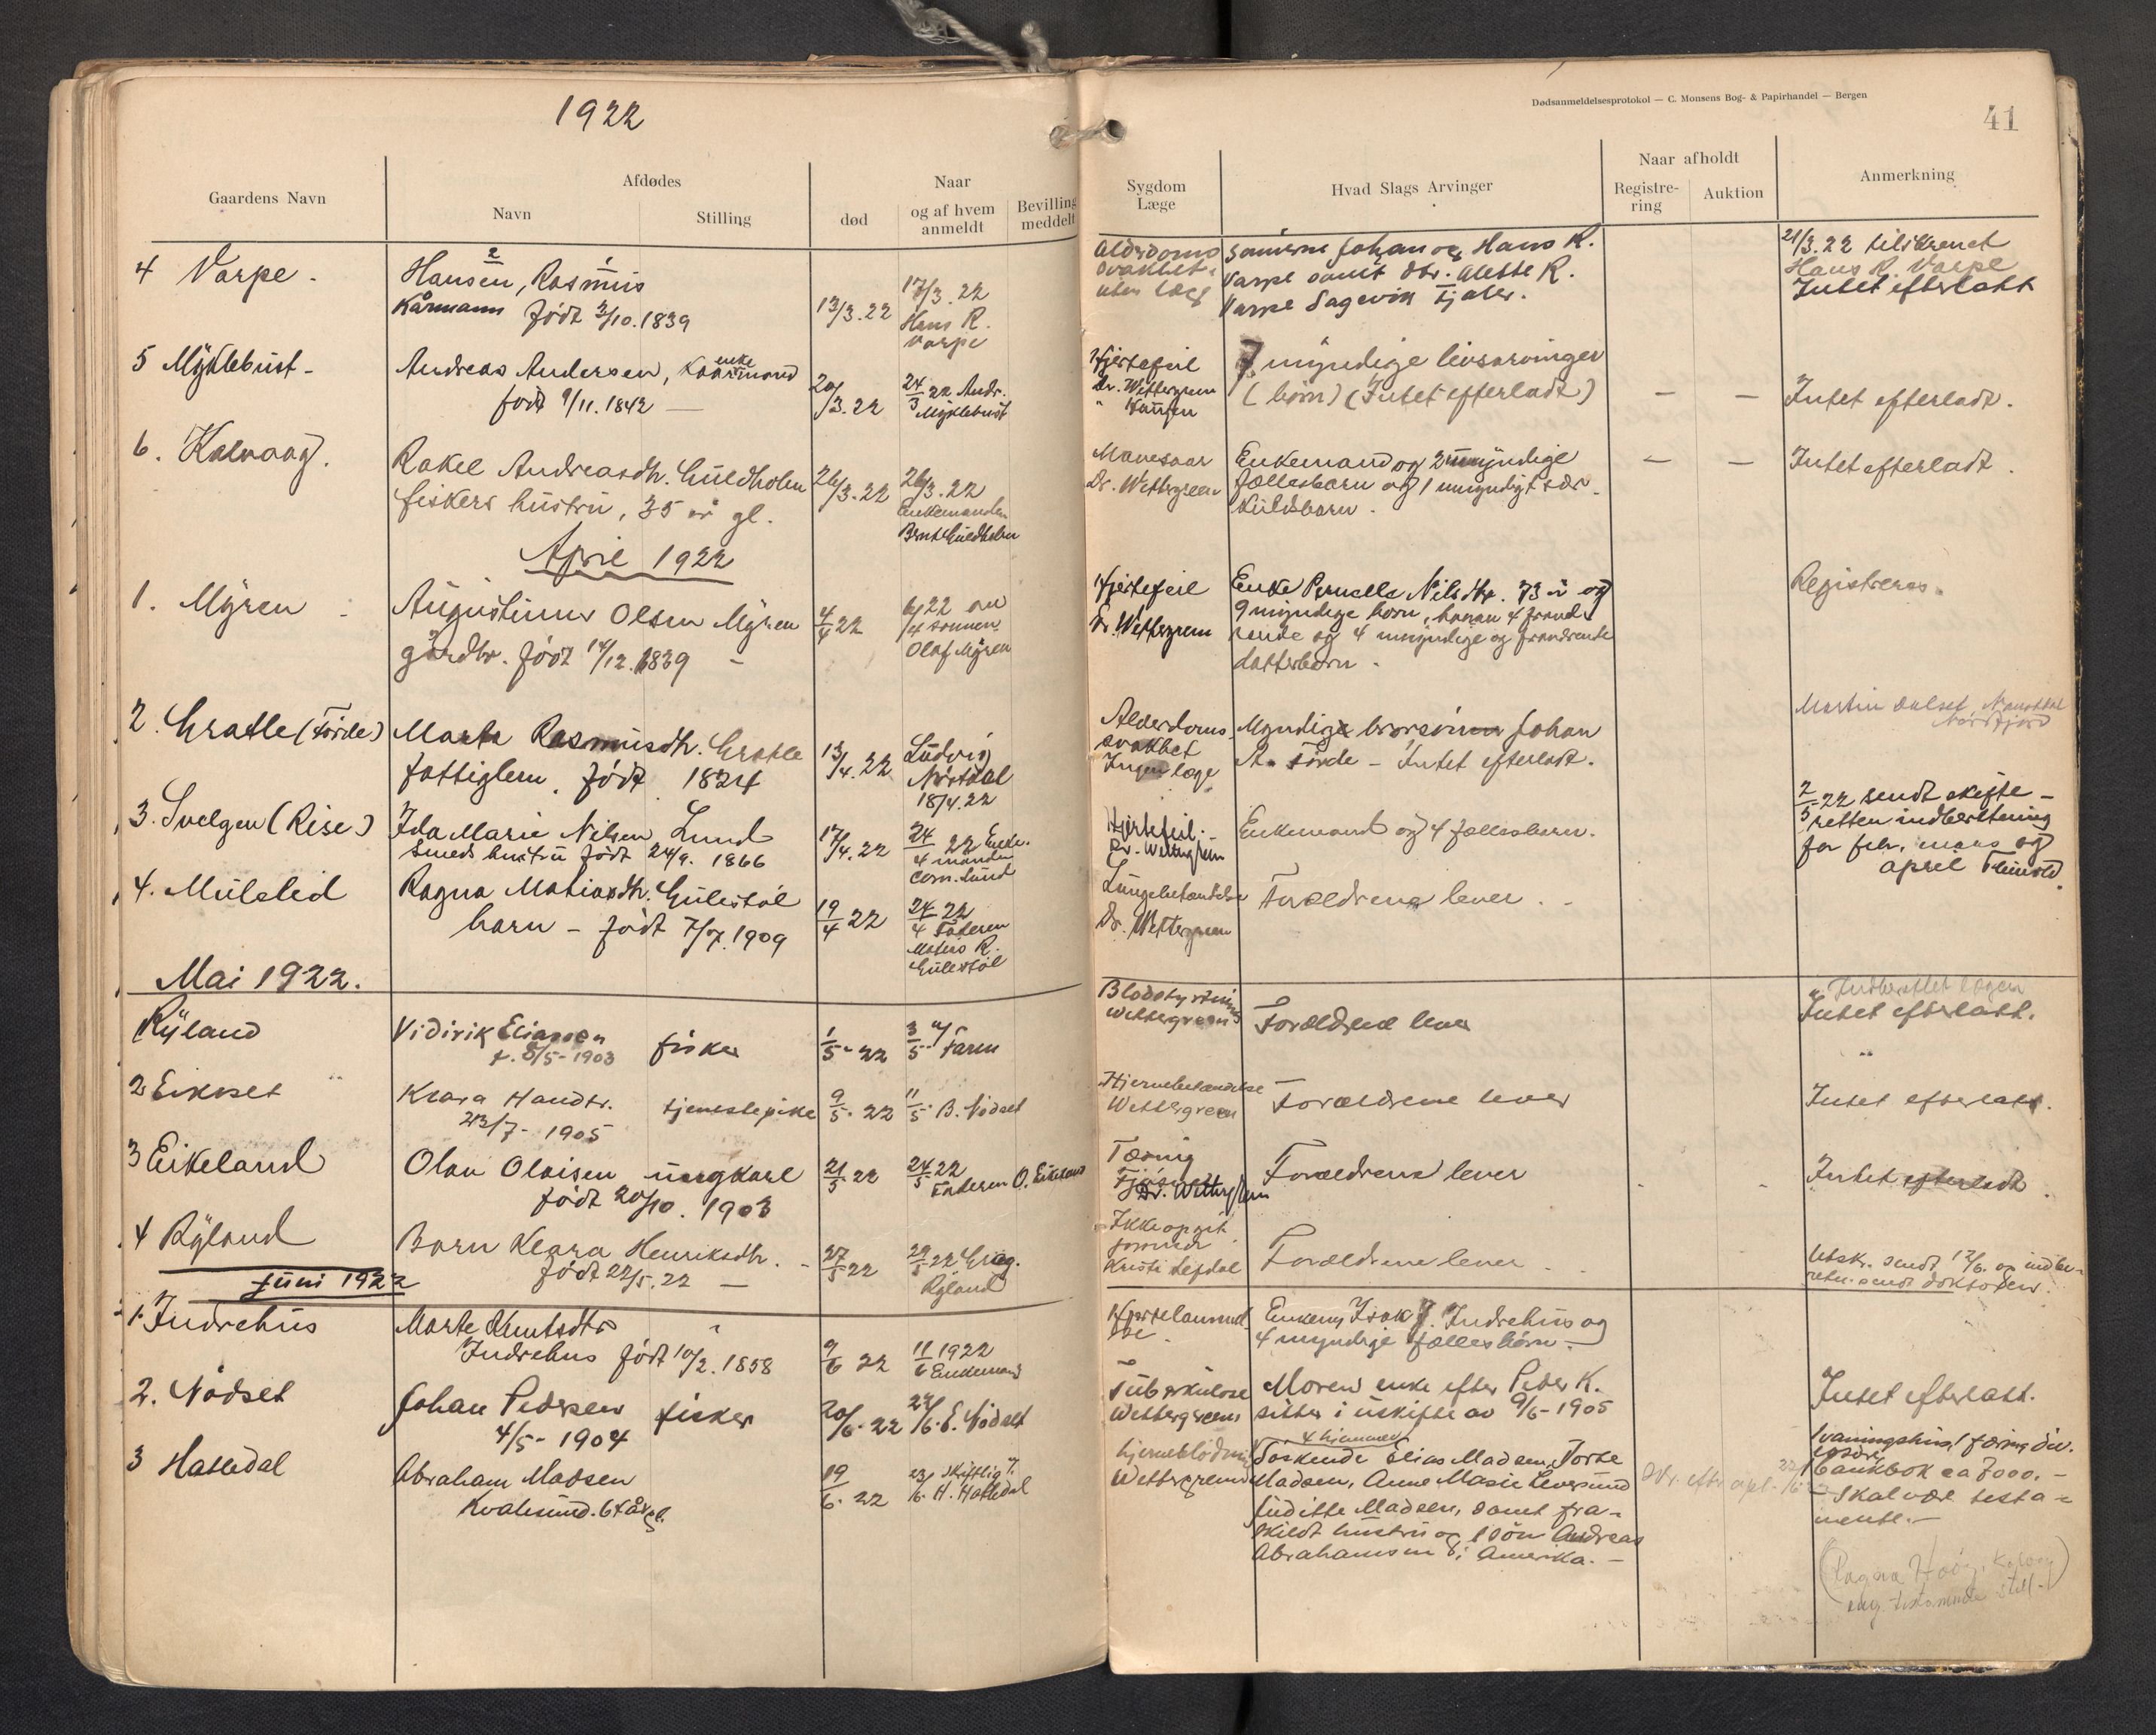 1922
Dødsanmeldelsesprotokol — C. Monsens Bog- & Papirhandel — Bergen
41
Gaardens Navn
Afdødes
Navn
Stilling
Naar
død
og af hvem anmeldt
Bevilling meddelt
Sygdom
Læge
Hvad Slags Arvinger
Naar afholdt
Registre-
ring
Auktion
Anmerkning
4 Varpe.
Hansen, Rasmus
Kårmann født 3/10.1839
13/3.22
17/3.22
Hans R.
Varpe
Alderdoms
svakhet
uten læge
Sønnerne Johan og Hans R.
Varpe samt dtr. Alette R.
Varpe Sagevik Fjaler.
21/3.22 tilskrevet
Hans R. Varpe
Intet efterlatt
5 Myklebust -
Andreas Andersen, Kaarmand
enke
født 9/11.1842 -
20/3.22
24/3 22 Andr.
Myklebust
Hjertefeil
Dr. Wettergreen
7 myndige livsarvinger
(børn) (Intet efterladt)
— —
Intet efterladt.
6. Kalvaag.
Rakel Andreasdtr. Guldholm
fiskers hustru, 35 år gl.
26/3.22
26/3.22
Enkemanden
Bernt Guldholm
Mavesaar
Dr. Wettergreen
Enkemand og 2 umyndige
fællesbarn og 1 umyndigt sær-
kulsbarn.
— —
Intet efterladt.
April 1922
1. Myren -
Augustinus Olsen Myren
gårdbr. født 14/12.1839 -
4/4 22
6/4 22 av
sønnen
Olaf Myren
Hjertefeil
Dr. Wettergreen
Enke Pernelle Nilsdtr. 73 år og
9 myndige børn, hvorav 4 fravæ-
rende og 4 umyndige og fraværende
datterbørn.
Registreres.
2. Gratle (Førde)
Marta Rasmusdtr. Gratle
fattiglem. født 1824
13/4.22
Ludvig
Nørdal
18/4.22
Alderdoms
svakhet
Ingen læge
Myndige brorsønn Johan
R. Førde - Intet efterladt.
Martin
3. Svelgen (Rise)
Ida Marie Nilsen Lund
Smeds hustru født 24/9. 1866
17/4.22
24/4 22 Enke-
manden
Corn. Lund
Hjertefeil.
Dr. Wettergreen
Enkemand og 4 fællesbørn.
2/5-22 sendt skifte-
retten indberetning
for febr, mars og
april
4. Mulelid
Ragna Matiasdtr. Gulestøl
barn - født 7/7.1909
19/4 22
24/4 22
Faderen
Matias R.
Gulestøl
Lungebetændelse
Dr. Wettergreen
Forældrene lever.
Mai 1922.
Ryland
Vidirik Eliassen
f. 8/5-1903
fisker
1/5-22
3/5 a/
Faren
Blodstyrtning
Wettergreen
Forældrene lever
Indberettet lægen
Intet efterlatt.
2 Eikeset
Klara Handtr.
23/7-1905
tjenestepike
9/5-22
11/5 B. Nødset
Hjernebetændelse
Wettergreen
Forældrene lever
Intet efterlatt.
3 Eikeland
Olav Olaisen ungkarl
født 20/10. 1903
21/5 22
24/5 22
Faderen O. Eikeland
Tæring
Dr. Wettergreen
Forældrene lever
Intet efterladt.
4 Ryland
Barn Klara Henriksdtr.
født 22/5.22 -
27/5 22
29/5 22
Ryland
Ikke opgit
Kristi Lefdal
Forældrene lever
Utskr. sendt 12/6. og indbe-
retn. sendt doktoren.
Juni 1922
1. Indrehus
Marte Knutsdtr
Indrehus født 10/2.1858
9/6 22
11/6 1922
Enkemand
Hjertelammel-
se.
Enkem. Isak J. Indrehus og
4 myndige fællesbørn.-
2. Nødset
Johan Pedersen
4/5-1904
fisker
20/6-22
22/6. E. Nødset
Tuberkulose
Wettergreen
Moren enke efter Peder K.
sitter i uskifte av 9/6-1905
Intet efterlatt.
3 Hatledal
Abraham Madsen
Kvalesund. 64 år gl.
19/6.22
23/6. Skiftlig f.
H. Hatledal
hjerneblødning
Wettergreen
4 hjemmev.
Søskende Elias Madsen, Torte
Madsen, Anne Marie Levesund
Juditte Madsen, samt fra-
skilt hustru og 1 søn Andreas
Abrahamsen i Amerika.-
1 vaaningshus, 1 færing div.
løsøre
1 bankbok ca 7000.-
- Skal være testa-
mente.-
(Ragna